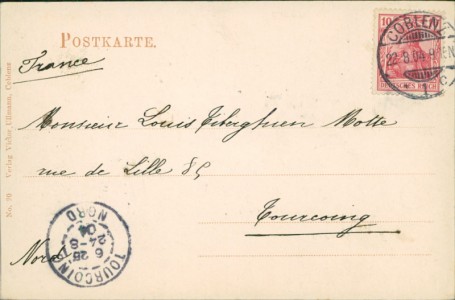 POSTKARTE.
France
10
DEUTSCHES REICH
COBLENZ
22.8.04
Monsieur Louis Tiberghien Motte
rue de Lille 85
Tourcoing
Nord
TOURCOING
6
24-8
04
NORD
No. 70 Verlag Victor Ullmann, Coblenz